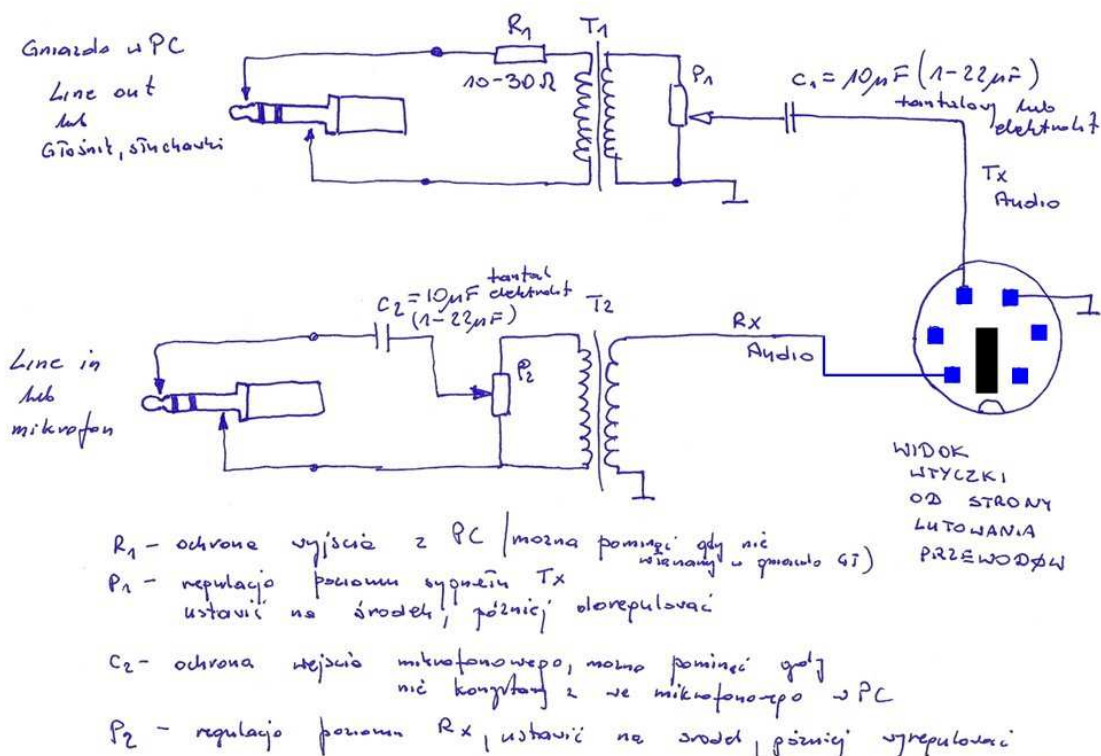 Gniazdo w PC
Line out
lub
Głośnik, słuchawki
R1
10-30Ω
T1
P1
C1 = 10µF (1-22µF)
tantalowy lub
elektrolit
Tx
Audio
Line in
lub
mikrofon
C2 = 10µF tantal
elektrolit
(1-22µF)
P2
T2
Rx
Audio
WIDOK
WTYCZKI
OD STRONY
LUTOWANIA
PRZEWODÓW
R1 - ochrona wyjścia z PC (można pominąć gdy nie
w gniazdo
P1 - regulacja poziomu sygnału Tx
ustawić na środek, później doregulować
C2 - ochrona wejścia mikrofonowego, można pominąć gdy
nie korzystamy z we mikrofonowego w PC
P2 - regulacja poziomu Rx, ustawić na środek, później wyregulować